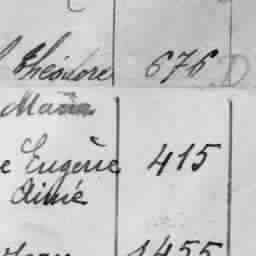 Théodore 676 D
Maria
e Eugène 415
Aimé
1455